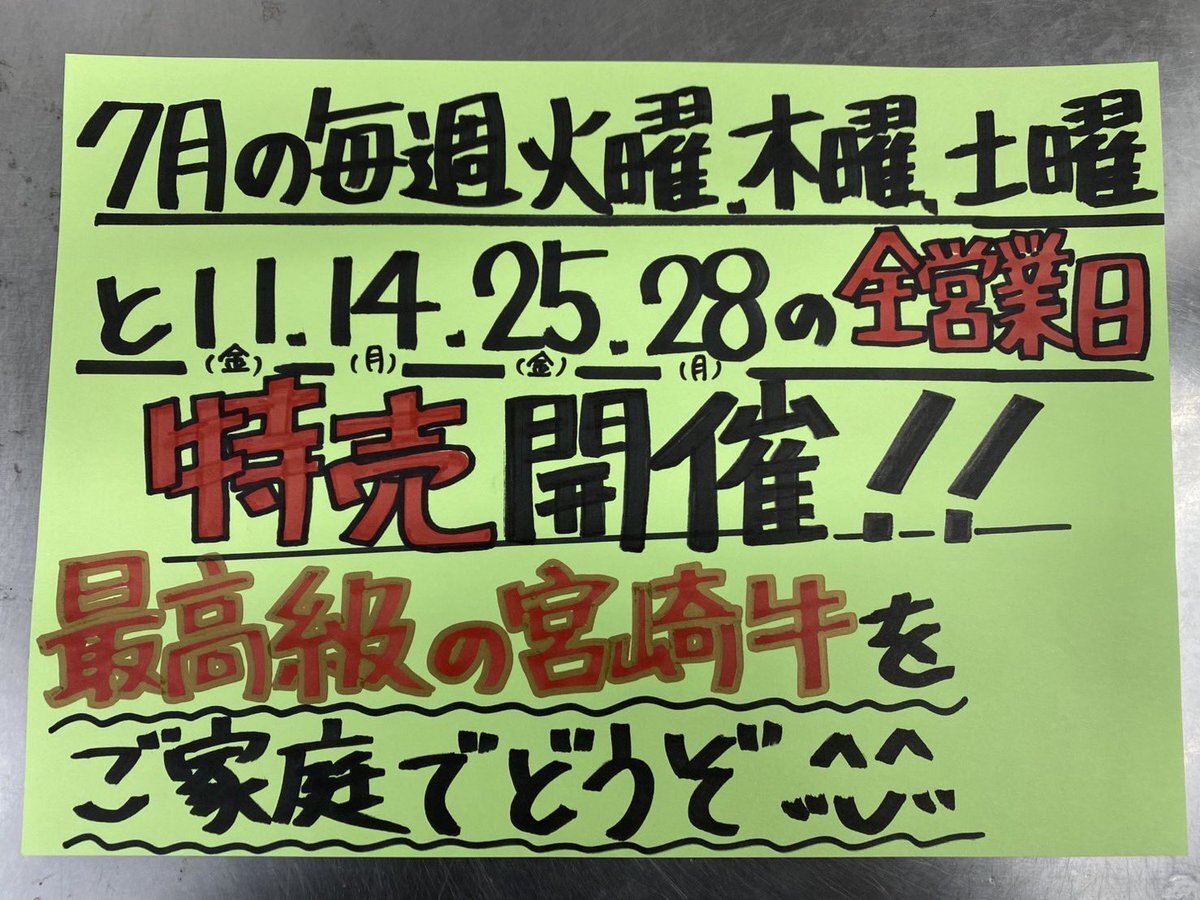 7月の毎週火曜、木曜、土曜
と11(金).14(月).25(金).28(月)の全営業日
特売開催!!
最高級の宮崎牛を
ご家庭でどうぞ^^